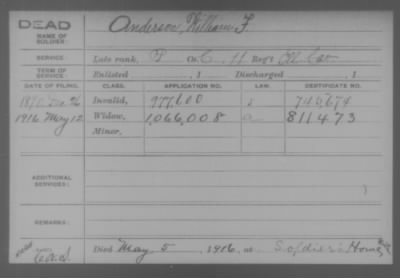 DEAD
NAME OF SOLDIER:
Anderson, William F.
SERVICE:
Late rank, P Co. C, 11 Reg't Ill Cav
TERM OF SERVICE:
Enlisted , 1 Discharged , 1
DATE OF FILING. CLASS. APPLICATION NO. LAW. CERTIFICATE NO.
Invalid, 977,600
1916 May 12 Widow, 1,066,008 811473
Minor,
ADDITIONAL SERVICES:
REMARKS:
Died May 5, 1916, at Soldier's Home